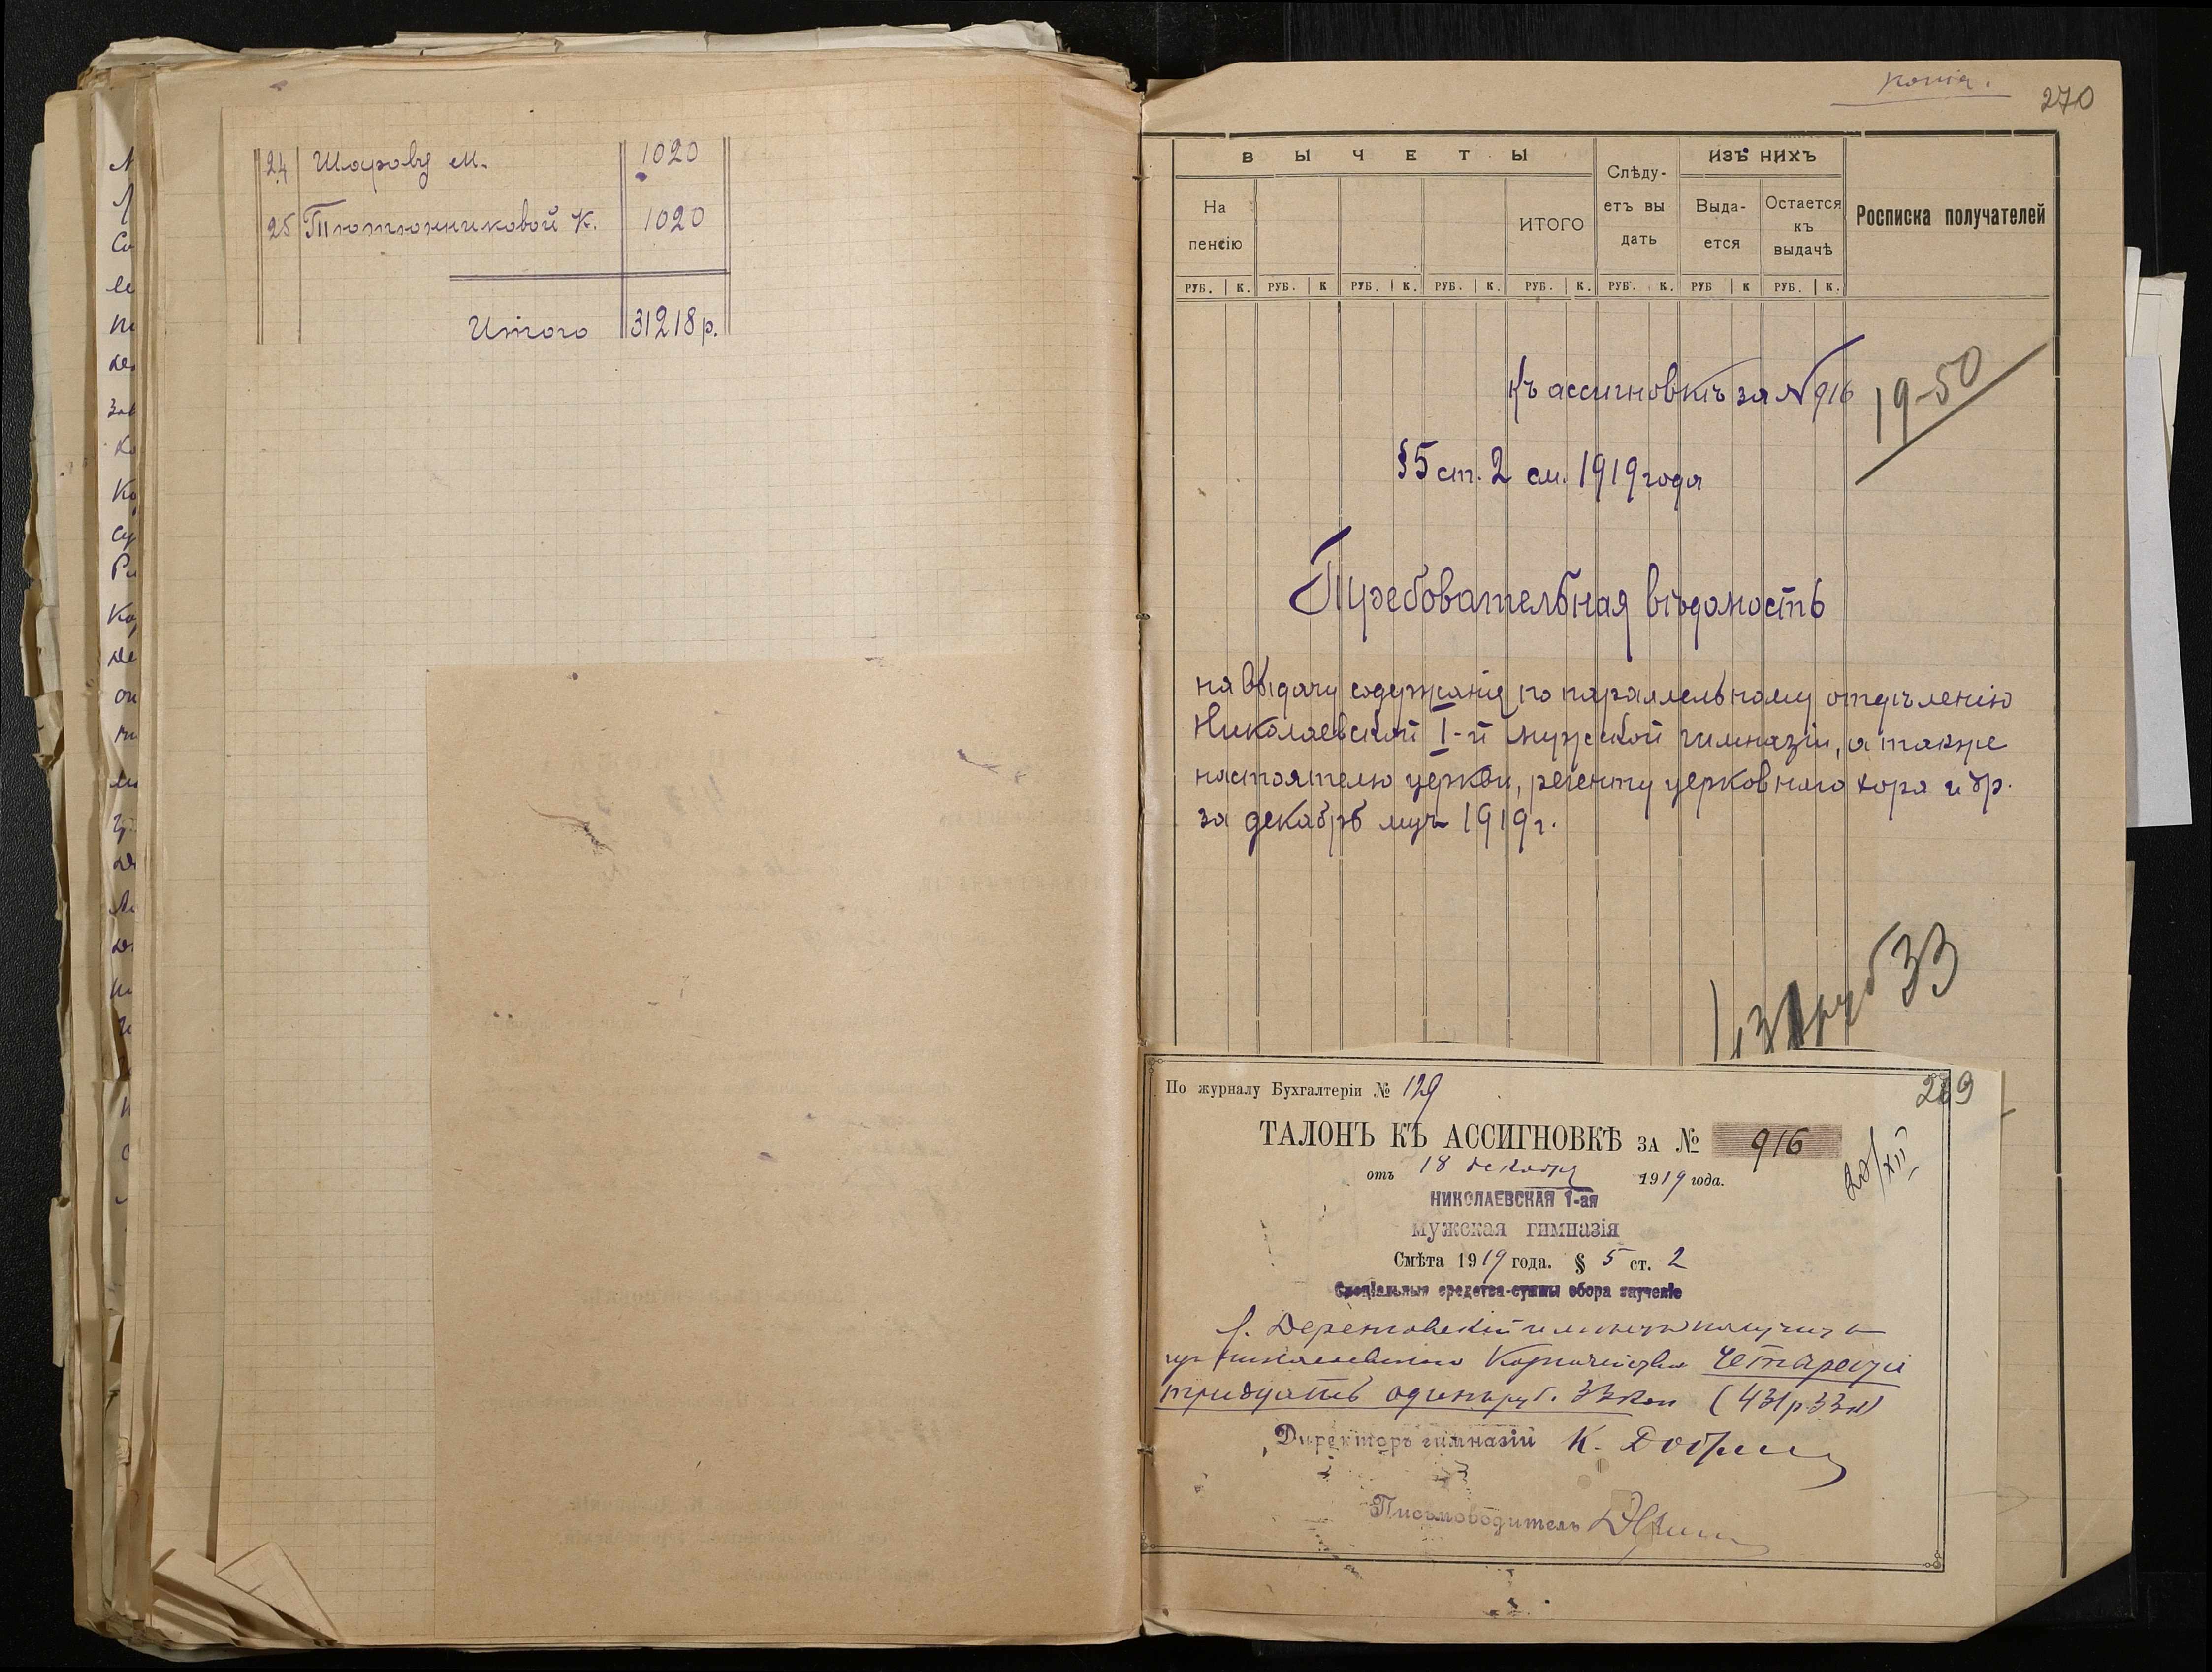 24 Шарову М. 1020
25 Тютюнниковой К. 1020
Итого 31218 р.
Копія.
270
ВЫЧЕТЫ
Слѣду-
етъ вы
дать
ИЗЪ НИХЪ
Росписка получателей
На
пенсію
ИТОГО
Выда-
ется
Остается
къ
выдачѣ
РУБ. К. РУБ. К РУБ. К. РУБ. К. РУБ. К. РУБ. К. РУБ К РУБ. К.
Къ ассигновкѣ за № 916
19-50
§5 ст. 2 см. 1919 года
Требовательная вѣдомость
на выдачу содержанія по параллельному отдѣленію
Николаевской I-й мужской гимназіи, а также
настоятелю церкви, регенту церковнаго хора и др.
за декабрь мцъ 1919 г.
руб 33
По журналу Бухгалтеріи № 129
269
ТАЛОНЪ КЪ АССИГНОВКѢ ЗА № 916
отъ 18 декабря 1919 года.
20/XII
НИКОЛАЕВСКАЯ 1-ая
мужская гимназія
Смѣта 1919 года. § 5 ст. 2
Спеціальныя средства-суммы сбора за ученіе
получить
Казначейства четыреста
тридцать одинъ руб. 33 коп (431 р 33 к)
Директоръ гимназіи К.
Письмоводитель